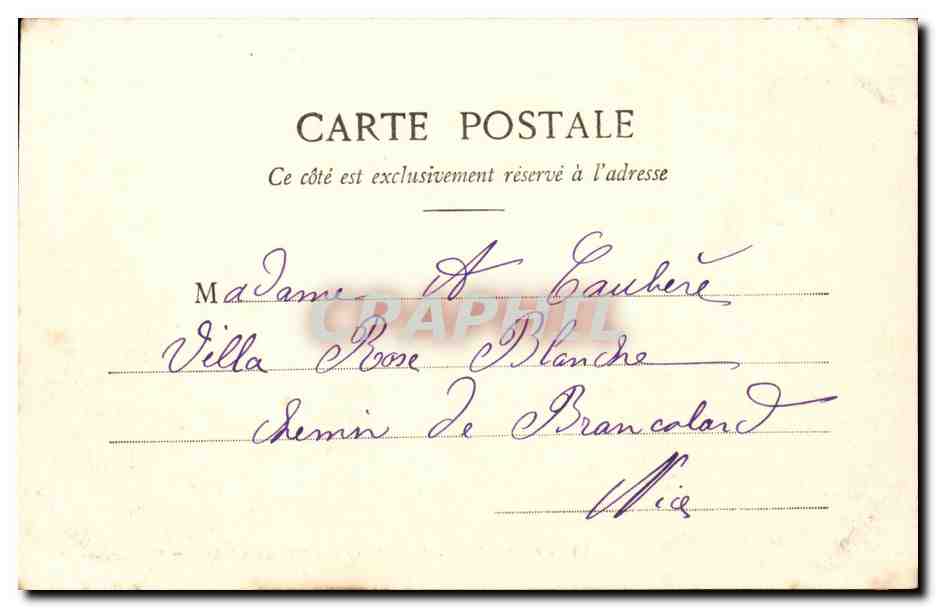 CARTE POSTALE
Ce côté est exclusivement réservé à l'adresse
Madame A Caubère
Villa Rose Blanche
chemin de Brancolard
Nice
CRAPHIL